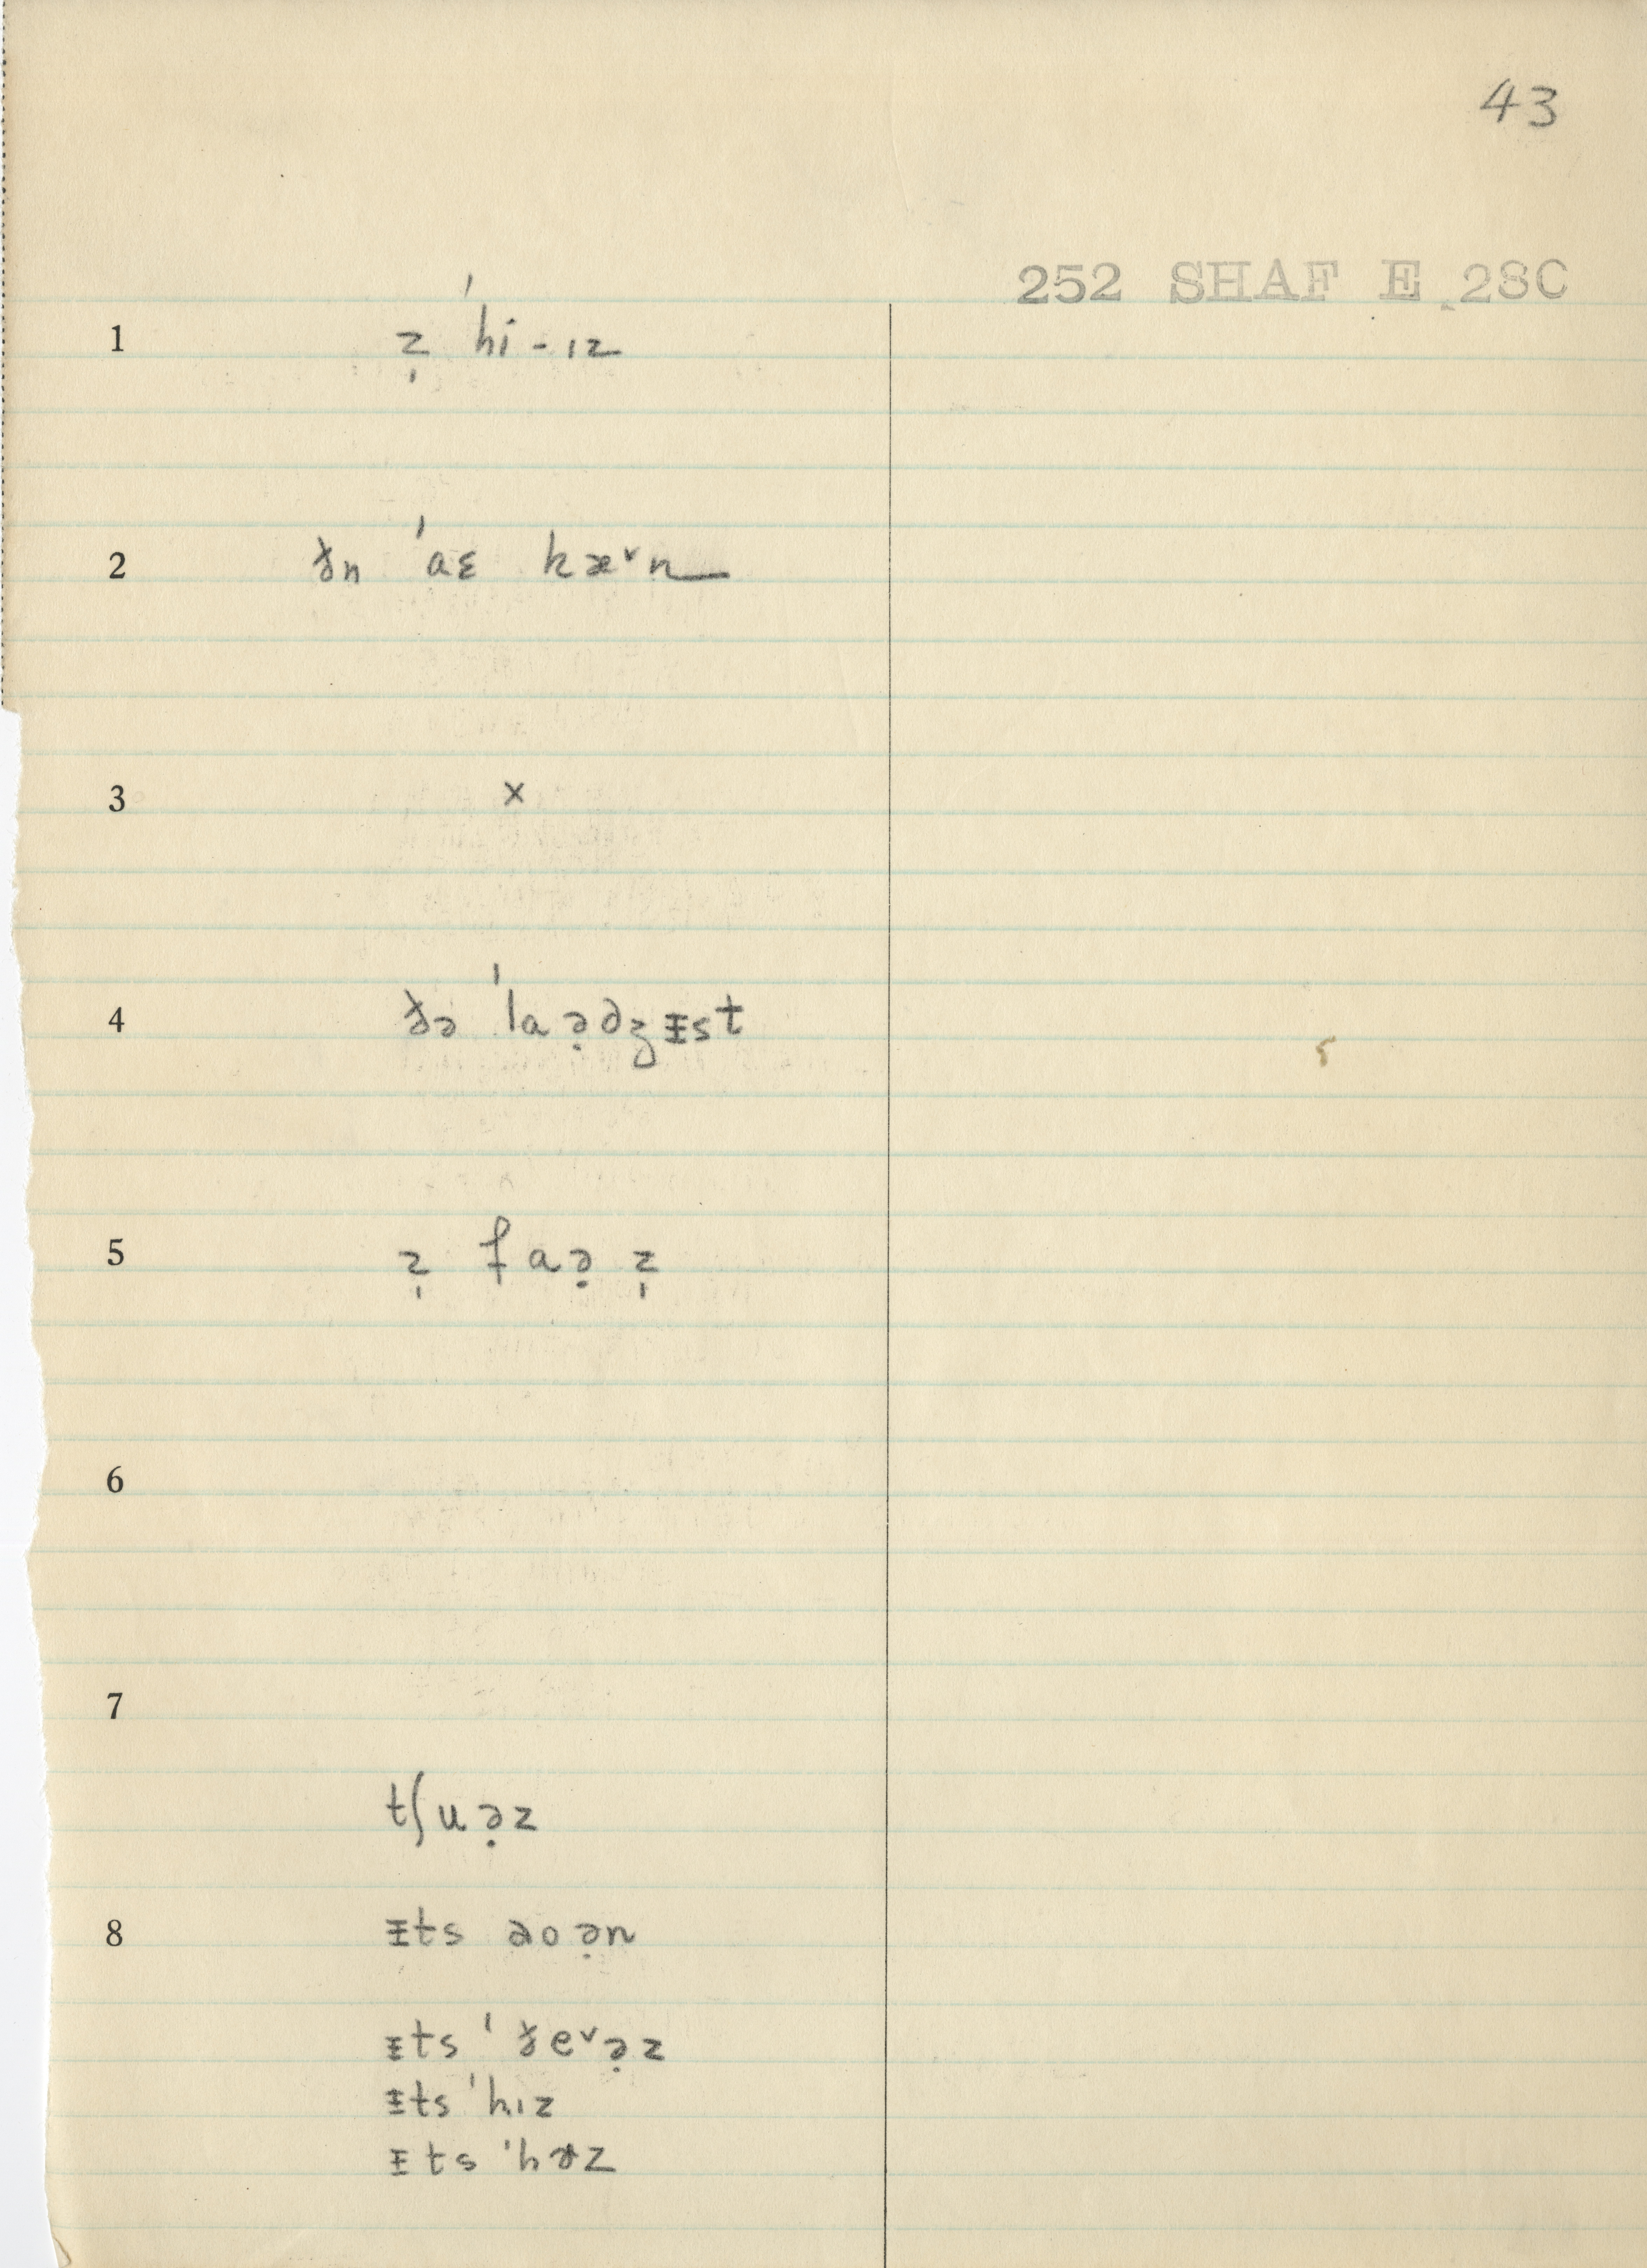 43
252 SHAF E 28C
1 z̩ ˈhi-ɪz
2 ðn ˈaɛ kæ˅n
3 x
4 ðə ˈlaə̣dʒᵻst
5 z̩ faə̣ z̩
6
7
tʃuə̣z
8 ᵻts əoə̣n
ᵻts ˈðe˅ə̣z
ᵻts ˈhɪz
ᵻts ˈhɝz